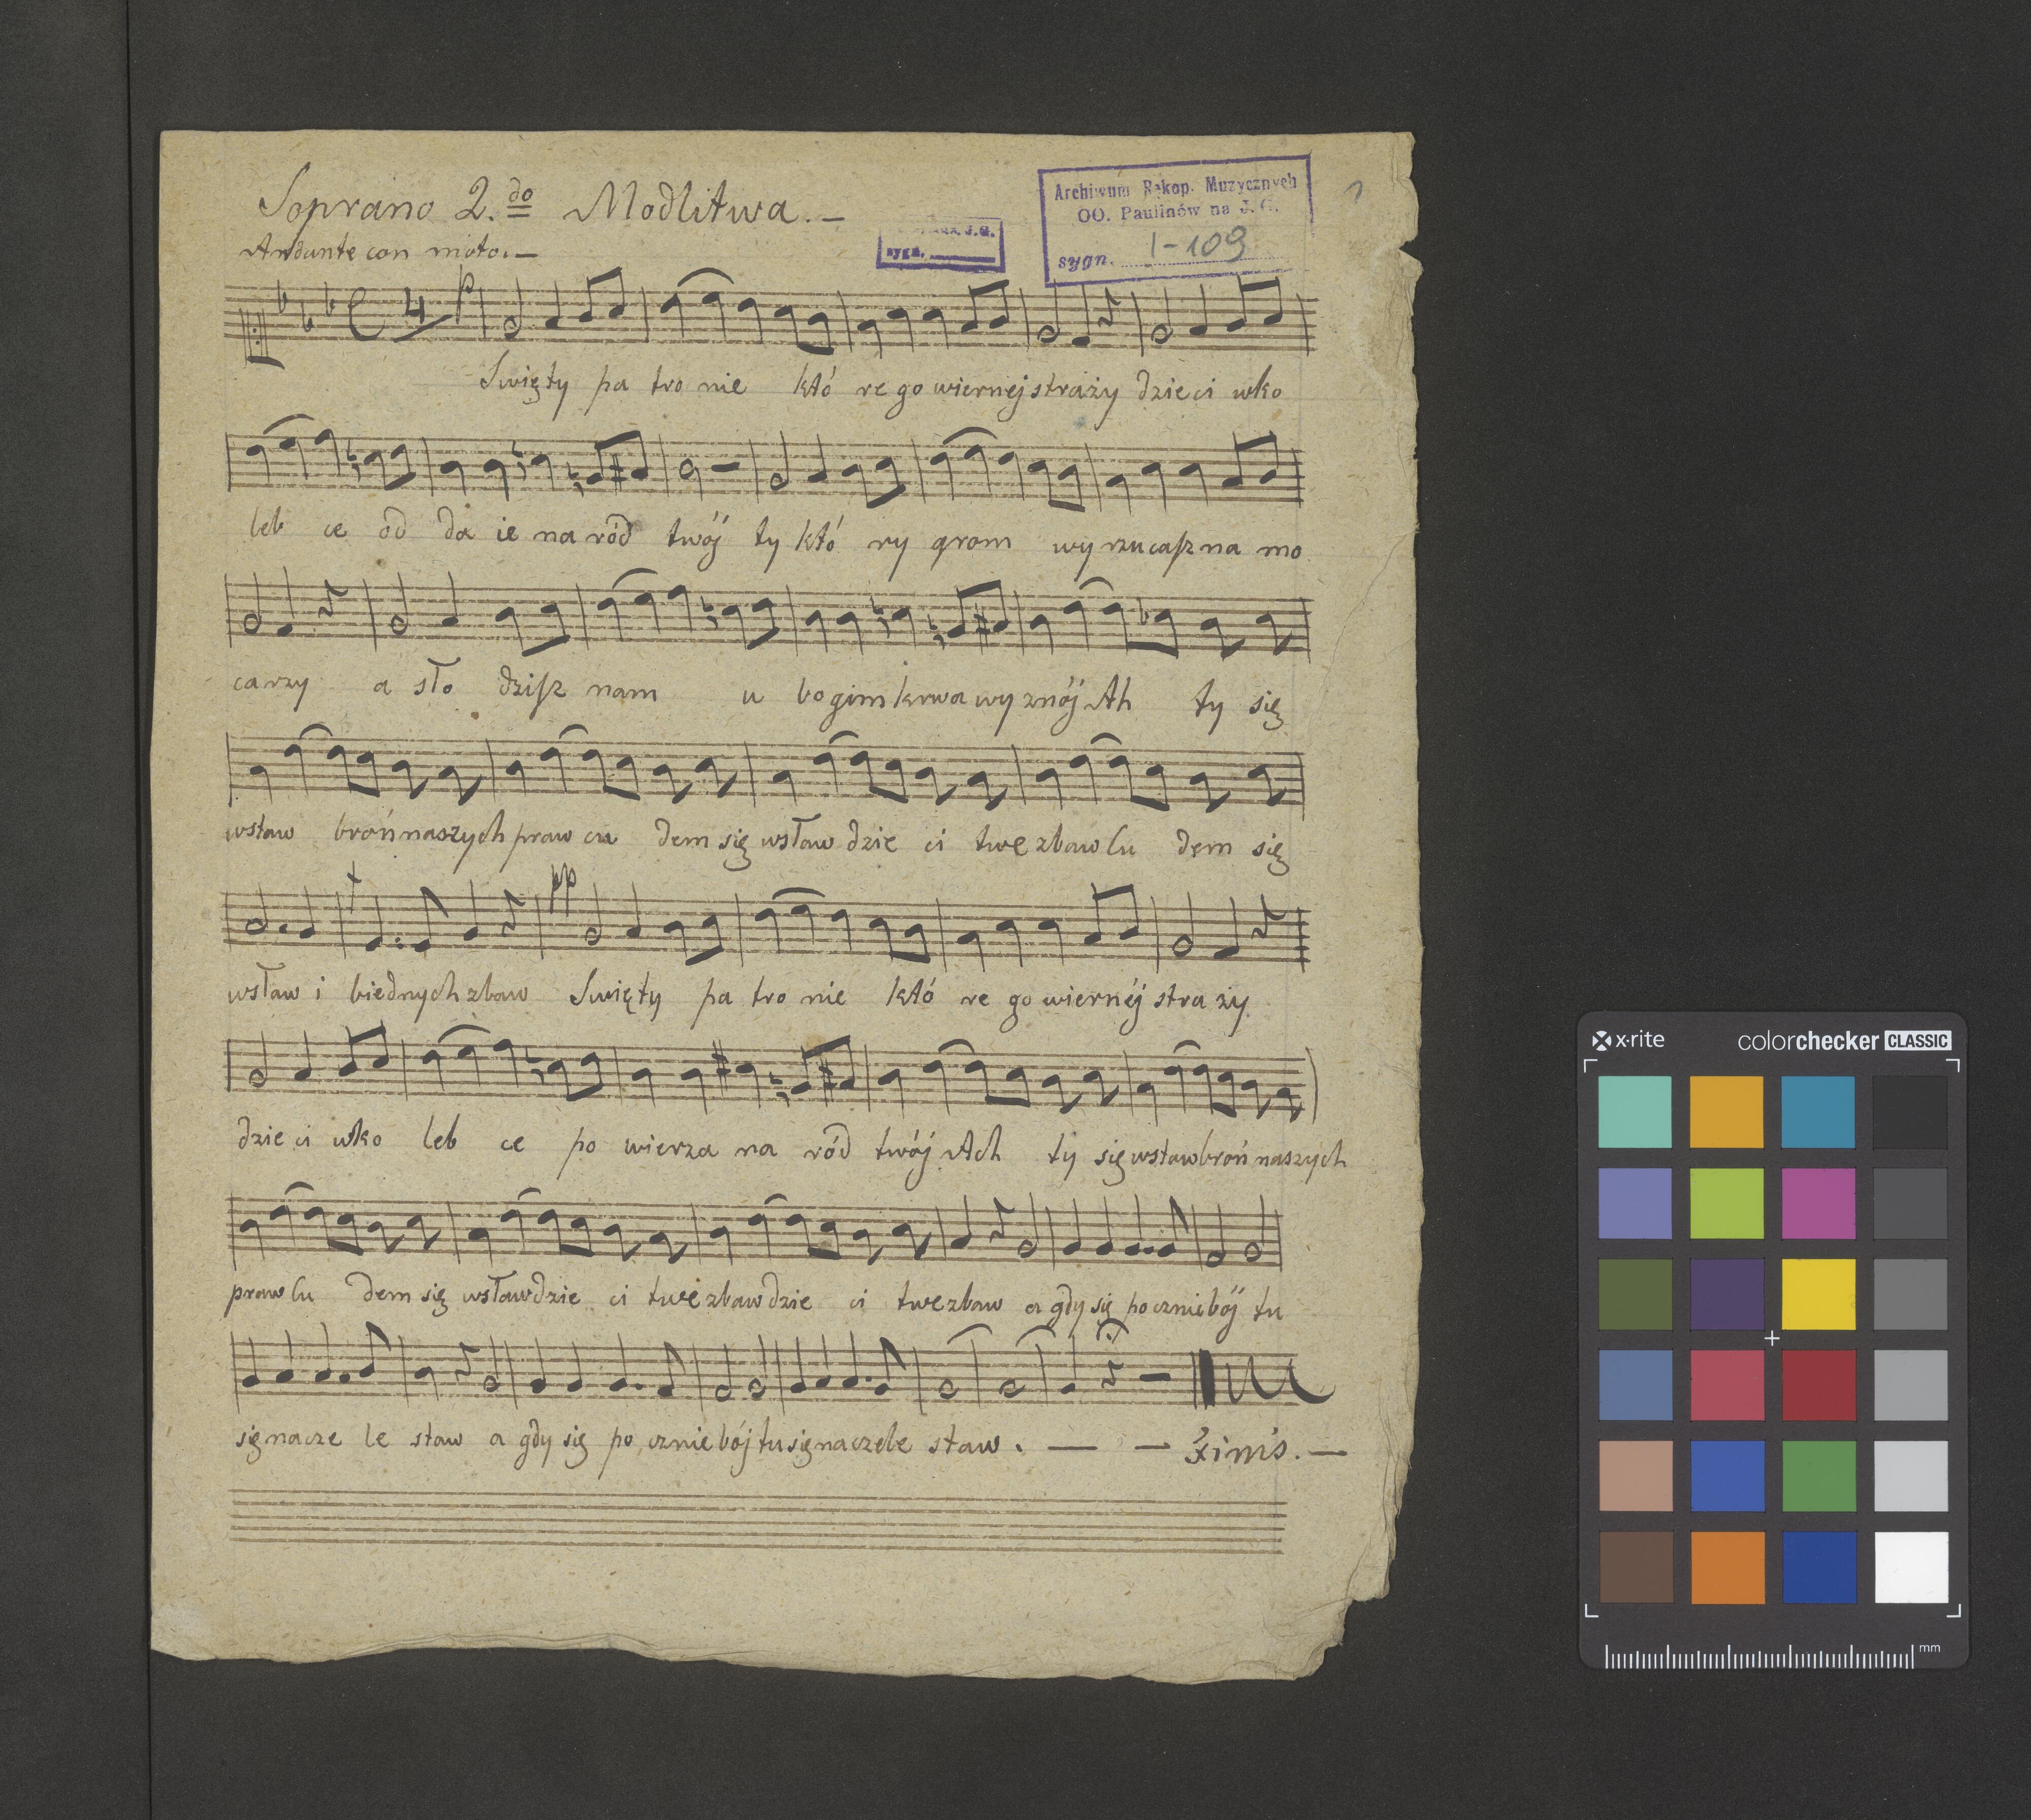 Soprano 2.do Modlitwa. —
Andante con moto. —
Archiwum Rękop. Muzycznych
OO. Paulinów na J. G.
sygn. I-109
J.G.
sygn.
1
4 p
Święty pa tro nie któ re go wiernej straży dzieci wko
leb ce od da ie na ród twój ty któ ry grom wy rzucasz na mo
carzy a sło dzisz nam u bogim krwawy znój Ah ty się
wstaw broń naszych praw cu dem się wstaw dzie ci twe zbaw lu dem się
pp
wstaw i biednych zbaw Święty pa tro nie któ re go wiernéj stra ży
dzie ci wko leb ce po wierza na ród twój Ach ty się wstaw broń naszych
praw lu dem się wstaw dzie ci twe zbaw dzie ci twe zbaw a gdy się pocznie bój tu
się na cze le staw a gdy się po cznie bój tu się na czele staw. — — Finis. —
x·rite colorchecker CLASSIC
mm